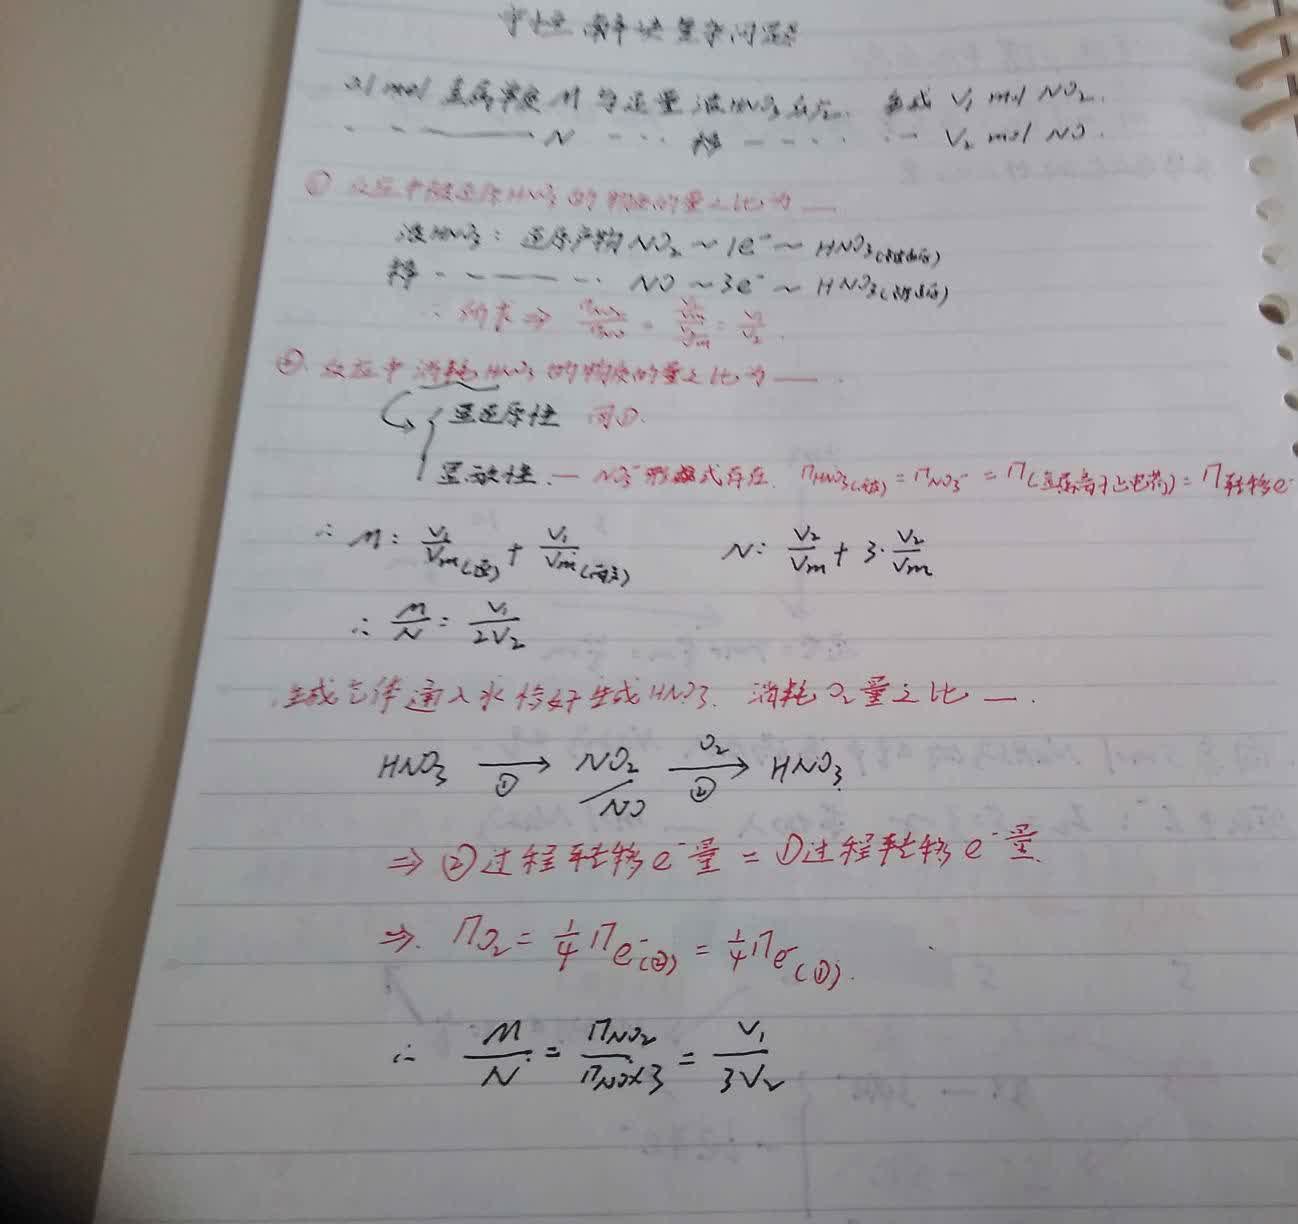 守恒解决复杂问题
1 mol 金属单质 M 与足量浓HNO3反应. 生成 V1 mol NO2.
N 稀 V2 mol NO.
① 反应中被还原HNO3的物质的量之比为 __
浓HNO3: 还原产物NO2 ~ 1e⁻ ~ HNO3(被还原)
稀 NO ~ 3e⁻ ~ HNO3(被还原)
∴ 所求 ⇒ nNO2/nNO = (V1/Vm)/(V2/Vm) = V1/V2.
② 反应中消耗HNO3的物质的量之比为 __.
显还原性 同①.
显酸性 — NO3⁻形式存在. nHNO3(酸) = nNO3⁻ = n(金属离子电荷) = n转移e⁻
∴ M: V1/Vm(还) + V1/Vm(酸) N: V2/Vm + 3·V2/Vm
∴ M/N = V1/2V2
生成气体通入水恰好生成HNO3. 消耗O2量之比 __.
HNO3 ①→ NO2/NO O2②→ HNO3
⇒ ②过程转移e⁻量 = ①过程转移e⁻量.
⇒. nO2 = 1/4 ne⁻(②) = 1/4 ne⁻(①).
∴ M/N = nNO2/nNO×3 = V1/3V2